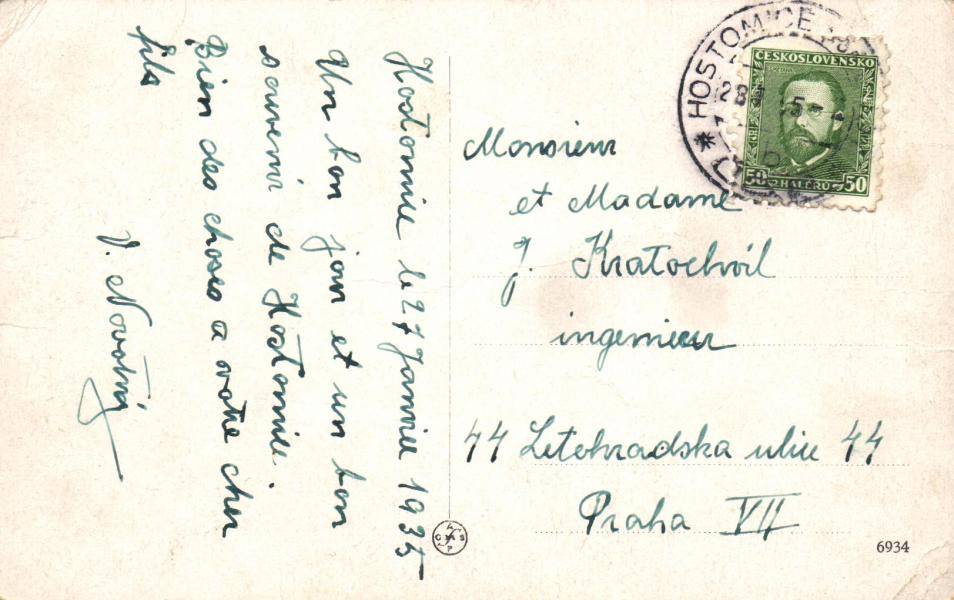 Hostomice le 27 Janvier 1935
Un bon jour et un bon
souvenir de Hostomice.
Bien des choses a votre cher
fils
V. Novotný
Monsieur
et Madame
J. Kratochvíl
ingenieur
44 Letohradska ulice 44
Praha VII
HOSTOMICE
ČESKOSLOVENSKO
50 HALÉŘŮ 50
6934